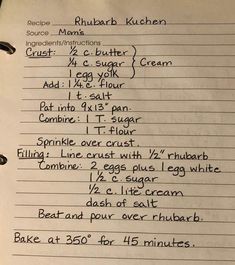 Recipe Rhubarb Kuchen
Source Mom's
Ingredients/Instructions
Crust: 1/2 c. butter
1/4 c. sugar } Cream
1 egg yolk
Add: 1 1/4 c. flour
1 t. salt
Pat into 9x13" pan.
Combine: 1 T. sugar
1 T. flour
Sprinkle over crust.
Filling: Line crust with 1/2" rhubarb
Combine: 2 eggs plus 1 egg white
1 1/2 c. sugar
1/2 c. lite cream
dash of salt
Beat and pour over rhubarb.
Bake at 350° for 45 minutes.